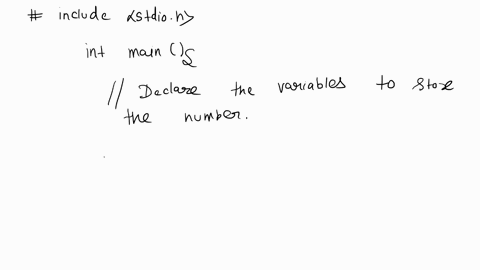 # include <stdio.h>
int main () {
// Declare the variables to store
the number.